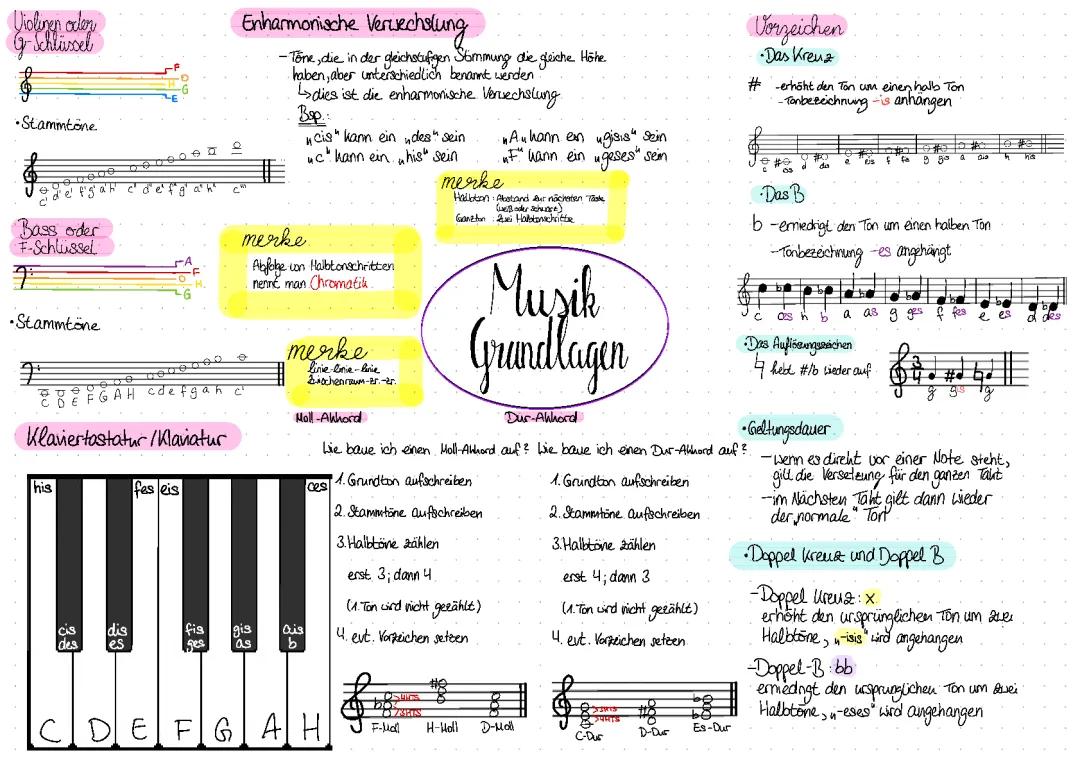 Violinen oder
G-Schlüssel
F
D
H
G
E
• Stammtöne
c' d' e' f' g' a' h' c'' d'' e'' f'' g'' a'' h'' c'''
Bass oder
F-Schlüssel
A
F
D
H
G
• Stammtöne
C D E F G A H c d e f g a h c'
Enharmonische Verwechslung
- Töne, die in der gleichstufigen Stimmung die gleiche Höhe
haben, aber unterschiedlich benannt werden
↳ dies ist die enharmonische Verwechslung
Bsp.:
„cis“ kann ein „des“ sein
„c“ kann ein „his“ sein
„A“ kann ein „gisis“ sein
„F“ kann ein „geses“ sein
merke
Halbton: Abstand zur nächsten Taste
(weiß oder schwarz)
Ganzton: Zwei Halbtonschritte
merke
Abfolge von Halbtonschritten
nennt man Chromatik
merke
Linie-Linie-Linie
Zwischenraum-zr.-zr.
Musik
Grundlagen
Klaviertastatur/Klaviatur
his
fes eis
ces
cis
des
dis
es
fis
ges
gis
as
ais
b
C D E F G A H
Moll-Akkord
Wie baue ich einen Moll-Akkord auf?
1. Grundton aufschreiben
2. Stammtöne aufschreiben
3. Halbtöne zählen
erst 3; dann 4
(1. Ton wird nicht gezählt)
4. evt. Vorzeichen setzen
>4HTS
>3HTS
F-Moll H-Moll D-Moll
Dur-Akkord
Wie baue ich einen Dur-Akkord auf?
1. Grundton aufschreiben
2. Stammtöne aufschreiben
3. Halbtöne zählen
erst 4; dann 3
(1. Ton wird nicht gezählt)
4. evt. Vorzeichen setzen
>3HTS
>4HTS
C-Dur D-Dur Es-Dur
Vorzeichen
• Das Kreuz
# - erhöht den Ton um einen halb Ton
- Tonbezeichnung -is anhängen
c cis d dis e eis f fis g gis a ais h his
• Das B
b - erniedrigt den Ton um einen halben Ton
- Tonbezeichnung -es angehängt
c ces h b a as g ges f fes e es d des
• Das Auflösungszeichen
♮ hebt #/b wieder auf
3
4
g gis g
• Geltungsdauer
- wenn es direkt vor einer Note steht,
gilt die Versetzung für den ganzen Takt
- im Nächsten Takt gilt dann wieder
der „normale“ Ton
• Doppel Kreuz und Doppel B
- Doppel Kreuz: x
erhöht den ursprünglichen Ton um zwei
Halbtöne, „-isis“ wird angehangen
- Doppel-B: bb
erniedrigt den ursprünglichen Ton um zwei
Halbtöne, „-eses“ wird angehangen